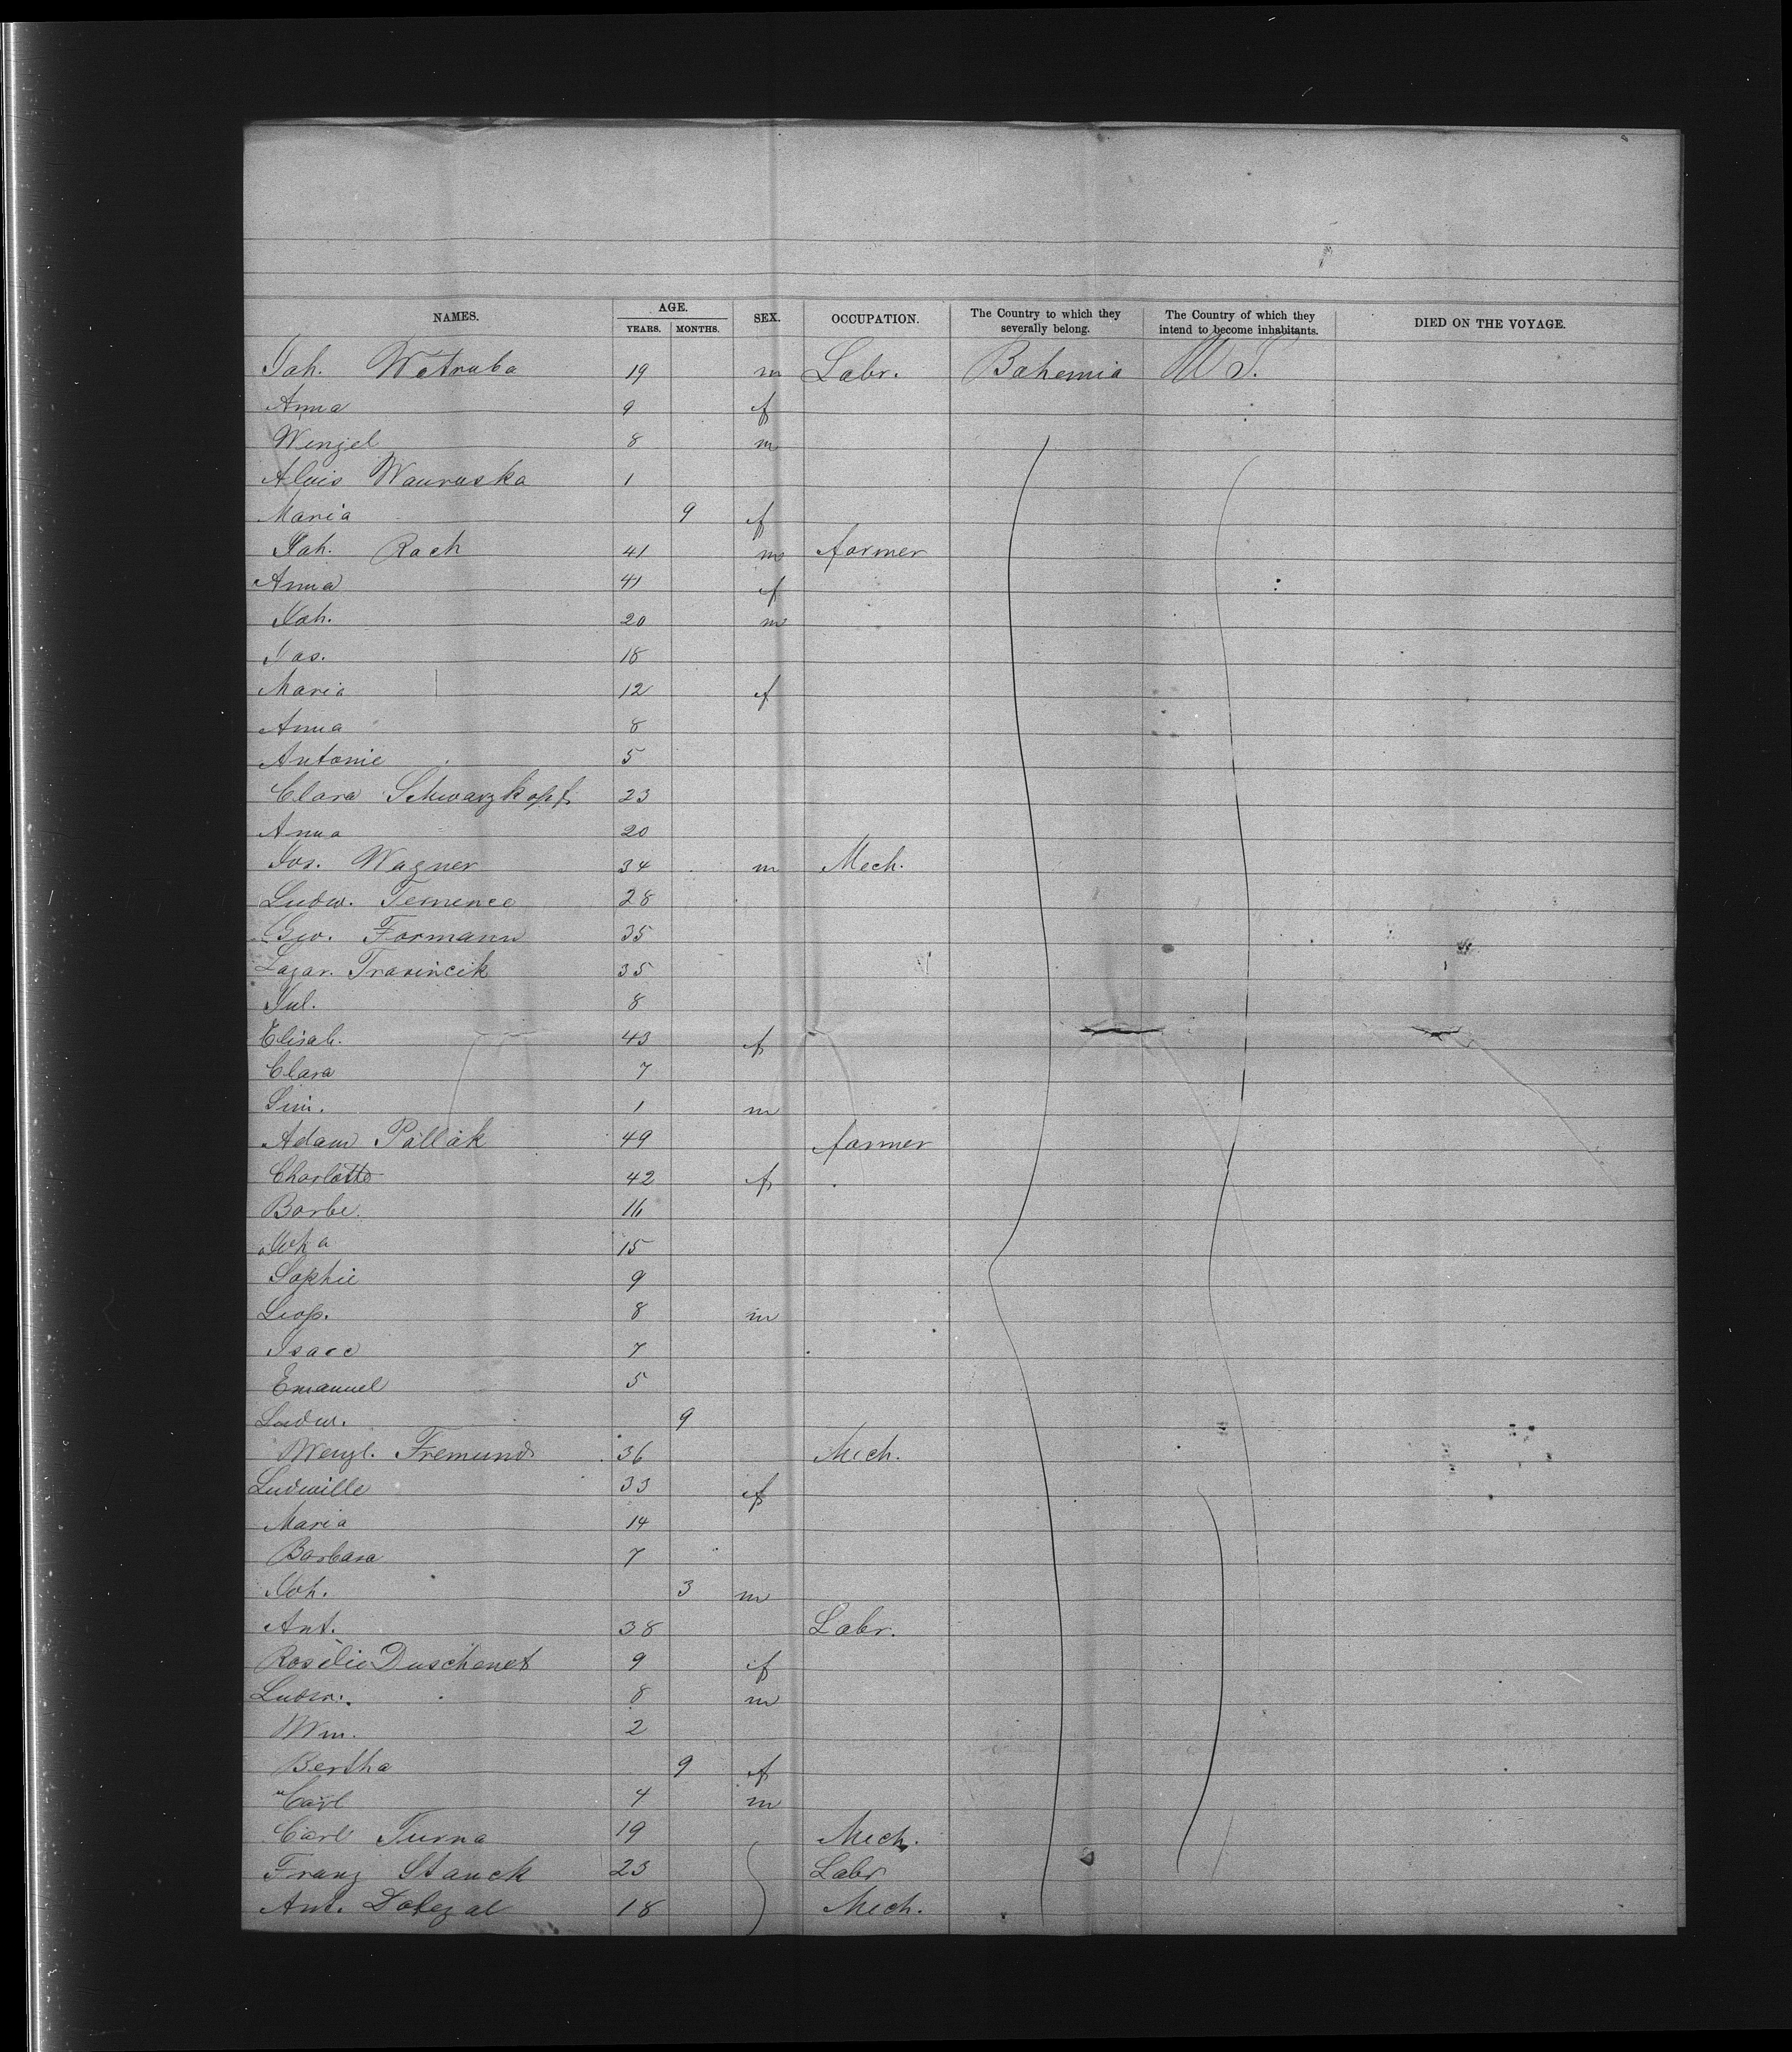 NAMES. AGE. SEX. OCCUPATION. The Country to which they severally belong. The Country of which they intend to become inhabitants. DIED ON THE VOYAGE.
YEARS. MONTHS.
Joh. Wotruba 19 m Labr. Bohemia U S.
Anna 9 f
Wenzel 8 m
Alois Wauruska 1
Maria 9 f
Joh. Rach 41 m farmer
Anna 41 f
Joh. 20 m
Jos. 18
Maria 12 f
Anna 8
Antonie 5
Clara Schwarzkopf 23
Anna 20
Jos. Wagner 34 m Mech.
Ludw. Temence 28
Geo. Formann 35
Lazar. Travincik 35
Jul. 8
Elisab. 43 f
Clara 7
Sim. 1 m
Adam Pollak 49 farmer
Charlotte 42 f
Barbe. 16
Joh a 15
Sophie 9
Leop. 8 m
Isaac 7
Emanuel 5
Ludw. 9
Wenzl. Fremund 36 Mech.
Ludmille 33 f
Maria 14
Barbara 7
Joh. 3 m
Ant. 38 Labr.
Rosalie Duschenet 9 f
Ludw. 8 m
Wm. 2
Bertha 9 f
Carl 4 m
Carl Turna 19 Mech.
Franz Stanek 23 Labr
Ant. Dolezal 18 Mech.